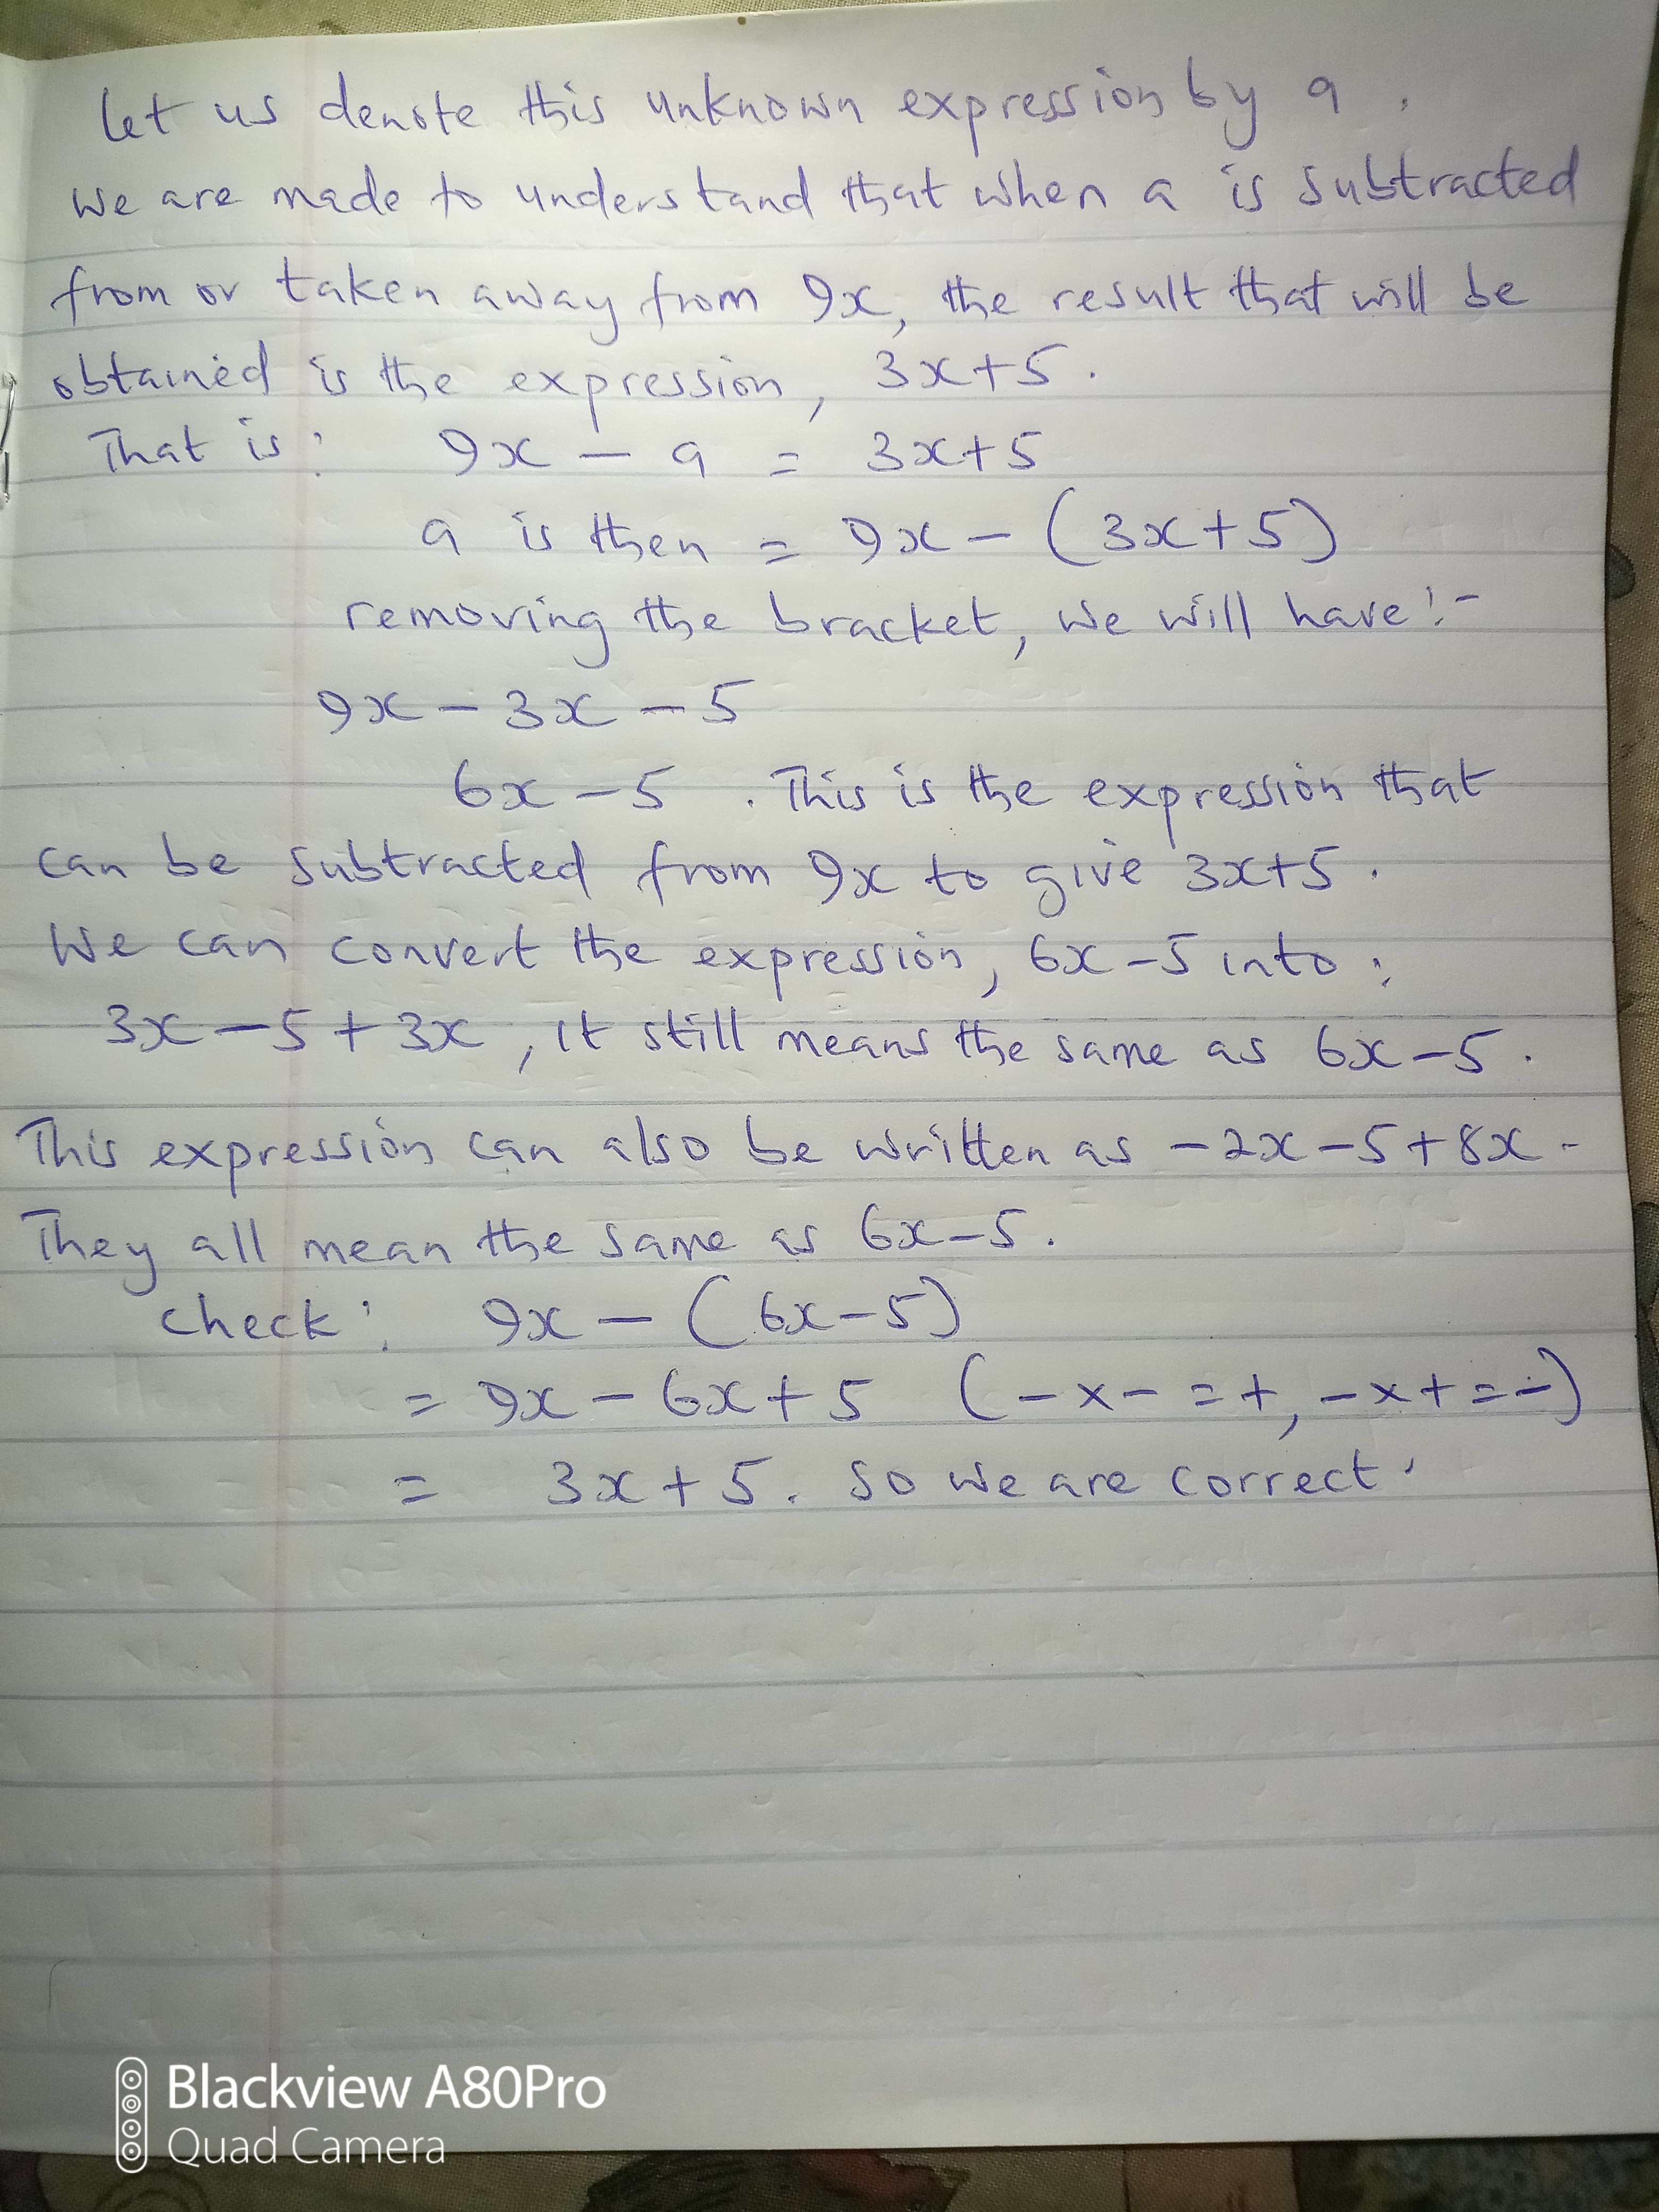 Let us denote this unknown expression by a.
We are made to understand that when a is subtracted
from or taken away from 9x, the result that will be
obtained is the expression, 3x+5.
That is: 9x - a = 3x+5
a is then = 9x - (3x+5)
removing the bracket, we will have:-
9x - 3x - 5
6x - 5. This is the expression that
can be subtracted from 9x to give 3x+5.
We can convert the expression, 6x-5 into:
3x - 5 + 3x, it still means the same as 6x-5.
This expression can also be written as -2x-5+8x.
They all mean the same as 6x-5.
check: 9x - (6x-5)
= 9x - 6x + 5 (-x- = +, -x+ = -)
= 3x + 5. So we are correct.
Blackview A80Pro
Quad Camera